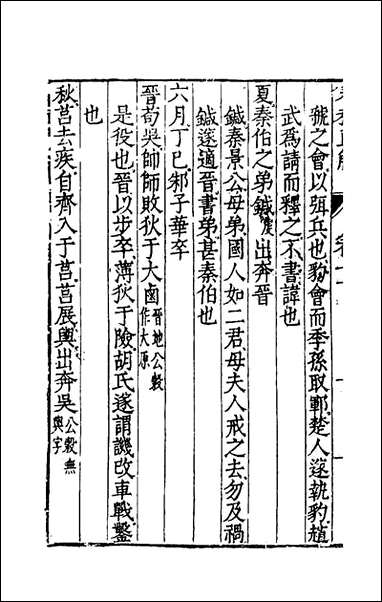 虢之會以弭兵也豹會而季孫取鄆楚人遂執豹趙
武為請而釋之不書諱也
夏秦伯之弟鍼出奔晉
鍼秦景公母弟國人如二君母夫人戒之去勿及禍
鍼遂適晉書弟甚秦伯也
六月丁巳邾子華卒
晉荀吳帥師敗狄于大鹵晉地公穀作大原
是役也晉以步卒薄狄于險胡氏遂謂譏改車戰鑿
也
秋莒去疾自齊入于莒莒展輿出奔吳公穀無輿字